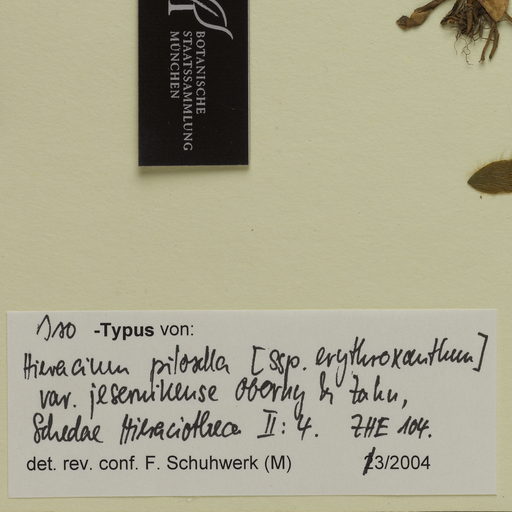 BOTANISCHE
STAATSSAMMLUNG
MÜNCHEN
Iso -Typus von:
Hieracium pilosella [ssp. erythroxanthum]
var. jesenikense Oborny & Zahn,
Schedae Hieraciotheca II: 4. ZHE 104.
det. rev. conf. F. Schuhwerk (M) 3/2004